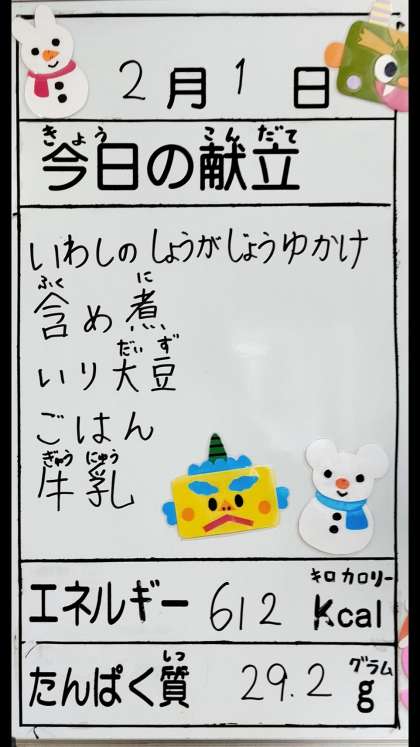 2月1日
きょう こんだて
今日の献立
いわしのしょうがじょうゆかけ
ふく に
含め煮
だいず
いり大豆
ごはん
ぎゅうにゅう
牛乳
キロカロリー
エネルギー 612 Kcal
しつ グラム
たんぱく質 29.2 g